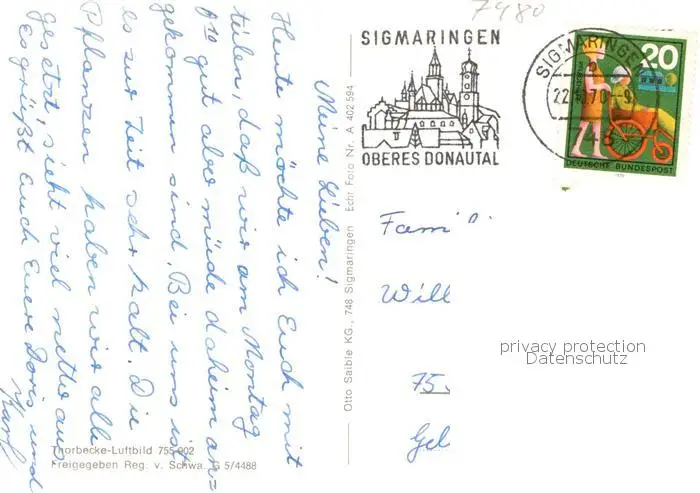 7480
SIGMARINGEN
OBERES DONAUTAL
SIGMARINGEN
22.10.70-9
20
DEUTSCHE BUNDESPOST
Meine Lieben!
Heute möchte ich Euch mit
teilen, daß wir am Montag
gut aber müde daheim an-
gekommen sind. Bei uns ist
es zur Zeit sehr kalt. Die
Pflanzen haben wir alle
gesetzt, sieht viel netter aus
Es grüßt Euch Eure Doris und
Karl
Otto Saible KG., 748 Sigmaringen Echt Foto Nr. A 402 594
Fam
Will
75
Gel
privacy protection
Datenschutz
Thorbecke-Luftbild 755 902
Freigegeben Reg. v. Schwa. G 5/4488